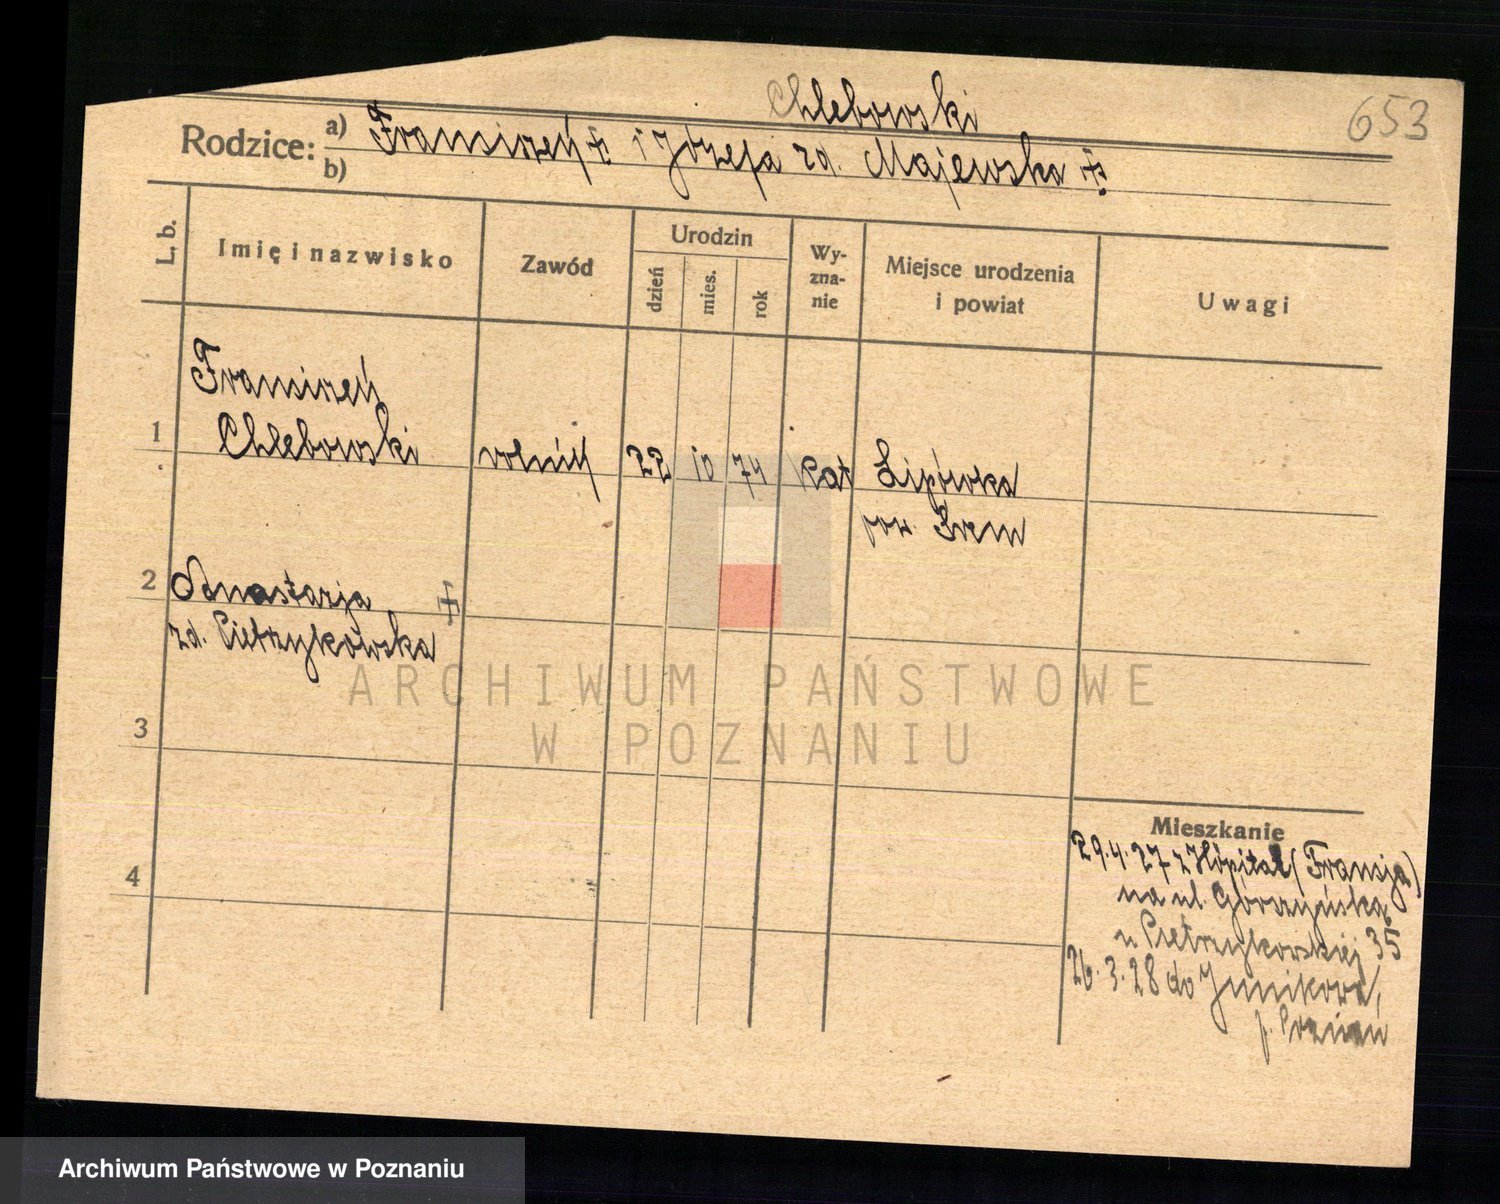 Chlebowski
653
Rodzice: a) Franciszek + i Józefa zd. Majewska +
b)
L. b.
Imię i nazwisko
Zawód
Urodzin
dzień
mies.
rok
Wy-
zna-
nie
Miejsce urodzenia
i powiat
Uwagi
Franciszek
1 Chlebowski rolnik 22 10 74 kat Lipówka
pow. Śrem
2 Anastazja +
zd. Pietrzykowska
ARCHIWUM PAŃSTWOWE
W POZNANIU
3
4
Mieszkanie
29.4.27 z Hôpital (Francja)
na ul. Górczyńską
u Pietrzykowskiej 35
26.3.28 do Junikowa,
p. Poznań
Archiwum Państwowe w Poznaniu